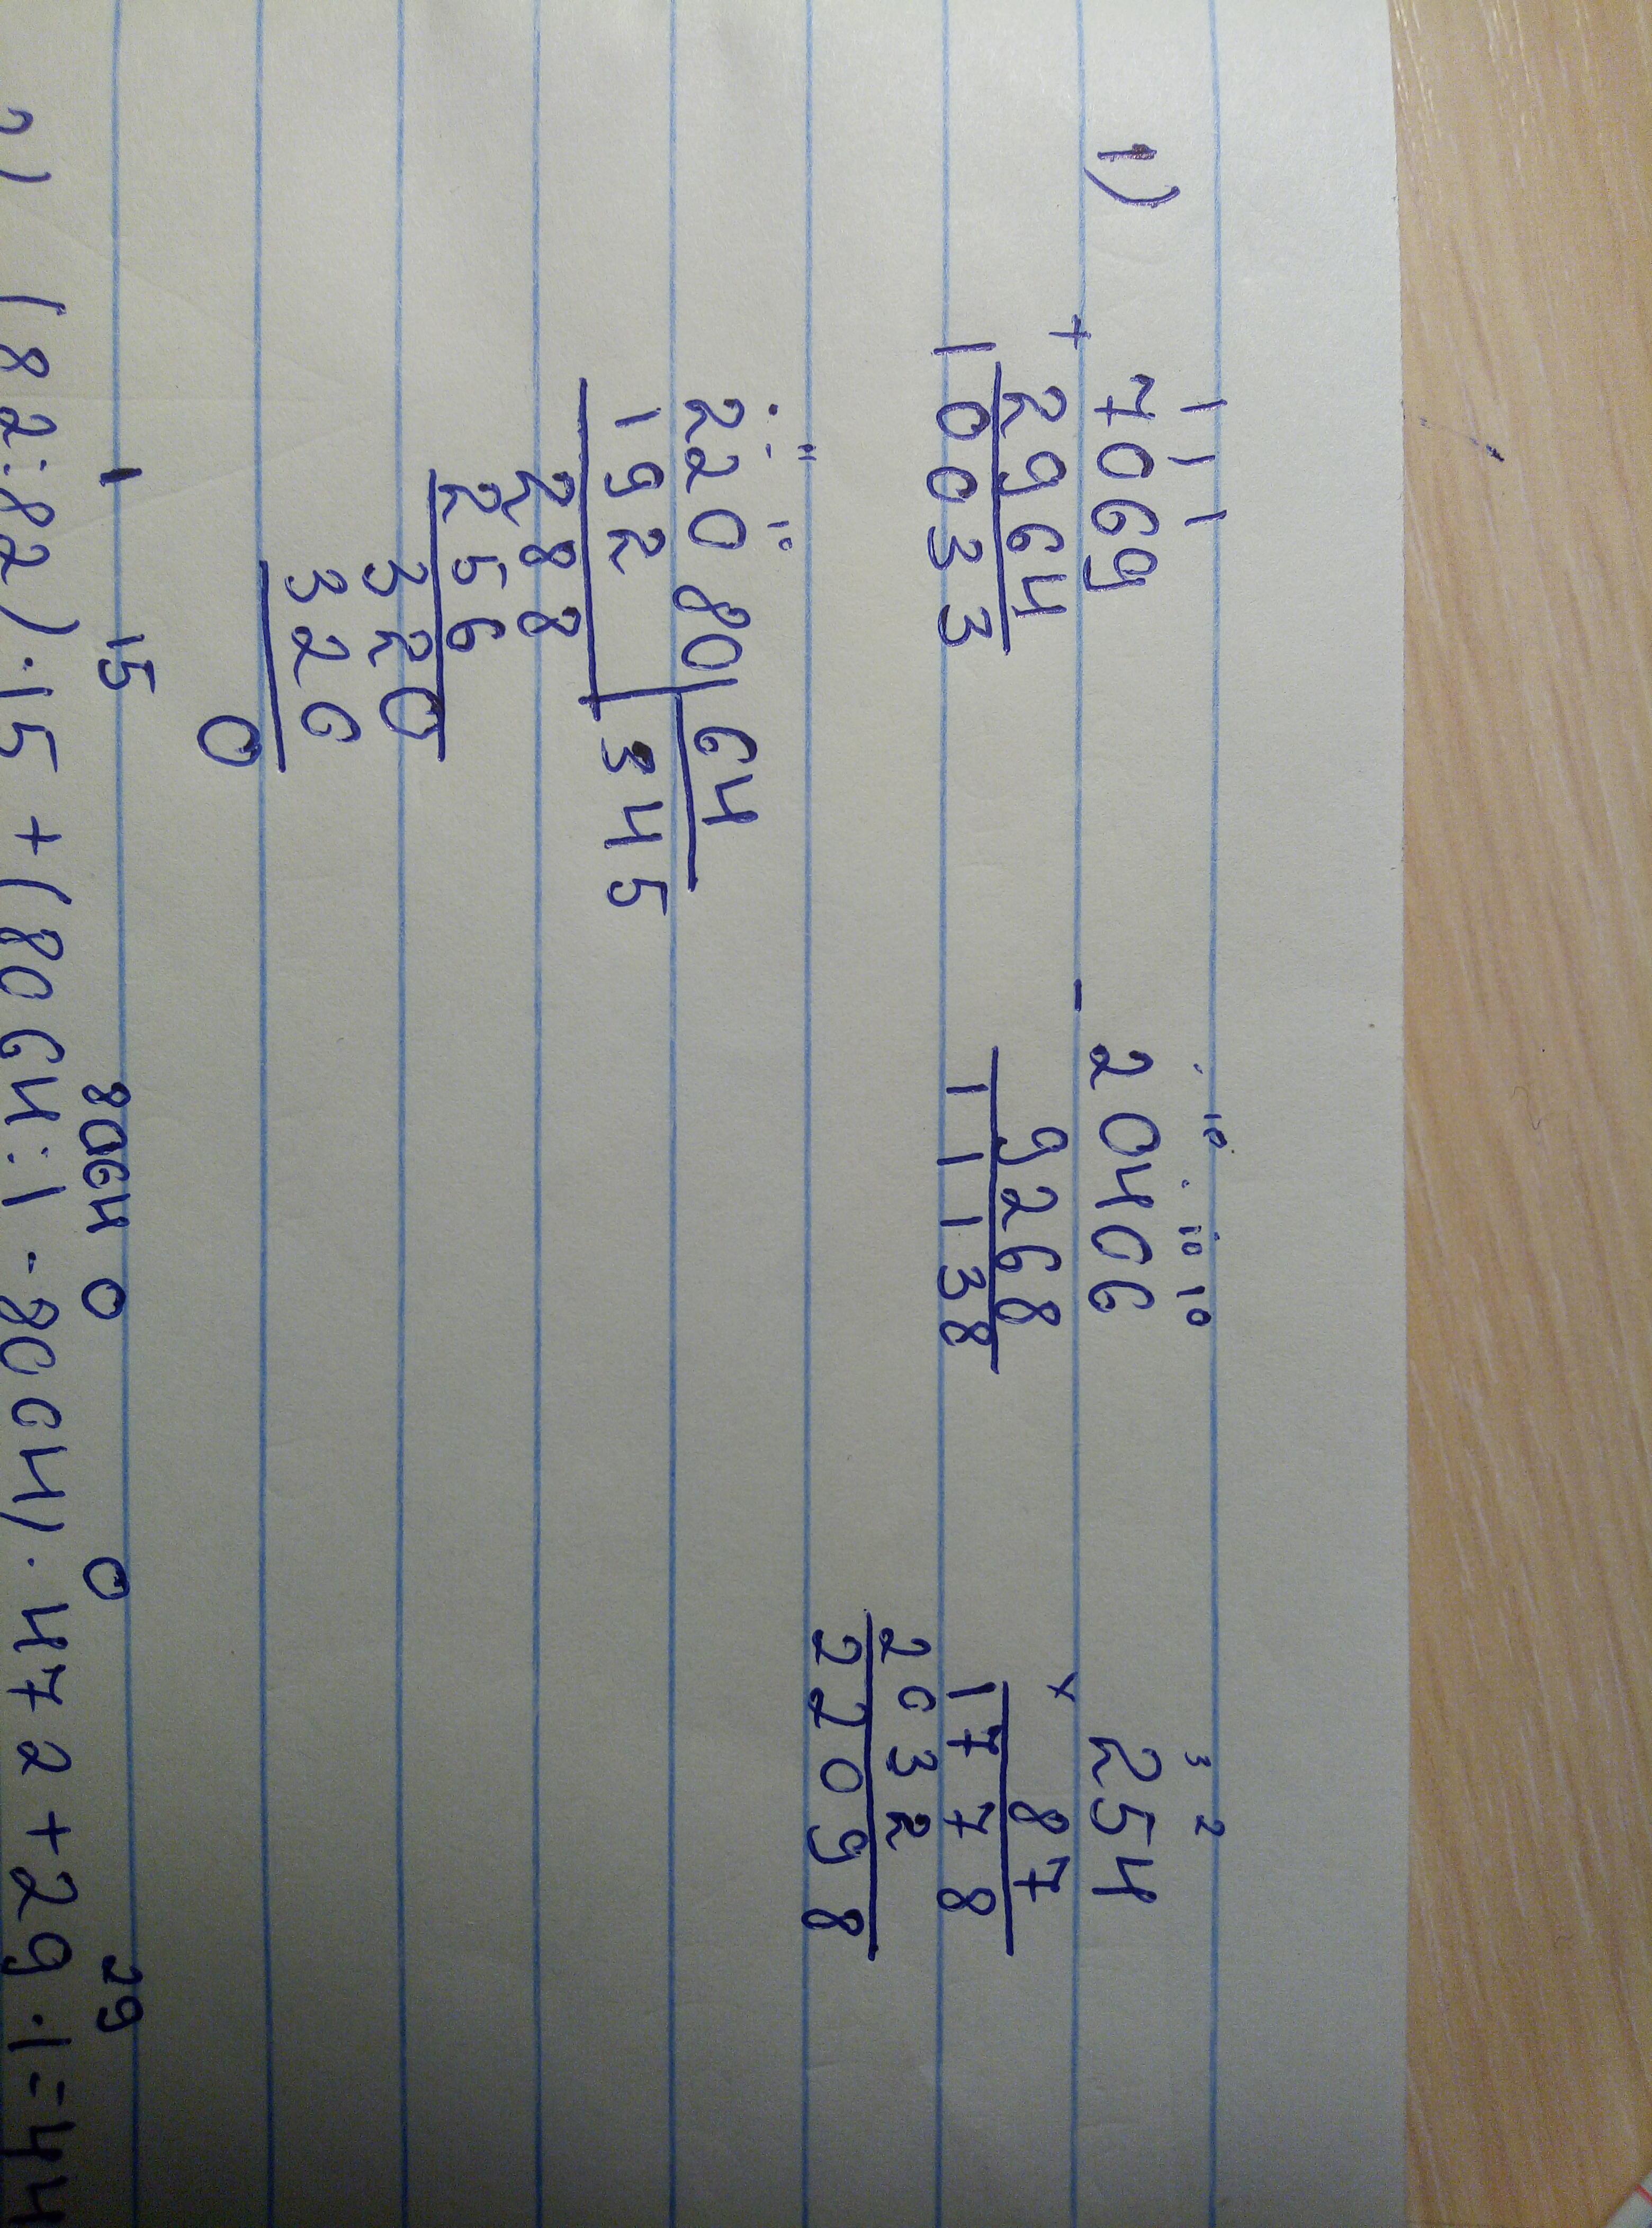 1)
1 1 1
7069
+
2964
10033
. 10 . 10 10
20466
-
9268
11138
3 2
254
x
87
1778
2032
22098
22080 | 64
192
345
288
256
320
320
0
1 15 8064 0 0 29
2) (82:82)·15+(8064:1-8064)·472+29·1=44